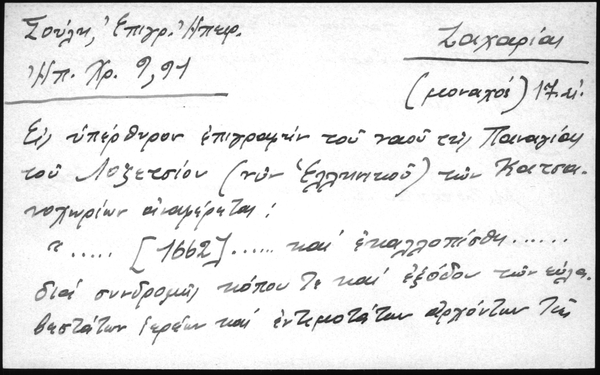 Σούλη, Ἐπιγρ. Ἠπειρ.
Ἠπ. Χρ. 9, 91
Ζαχαρίας
(μοναχός) 17. αἰ.
Εἰς ὑπέρθυρον ἐπιγραφὴν τοῦ ναοῦ τῆς Παναγίας
τοῦ Λοζετσίου (νῦν Ἑλληνικοῦ) τῶν Κατσα-
νοχωρίων ἀναφέρεται:
"..... [1662]..... καὶ ἐκαλλοπίσθη......
διὰ συνδρομῆς κόπου τε καὶ ἐξόδου τῶν εὐλα-
βεστάτων ἱερέων καὶ ἐντιμοτάτων ἀρχόντων τῆς